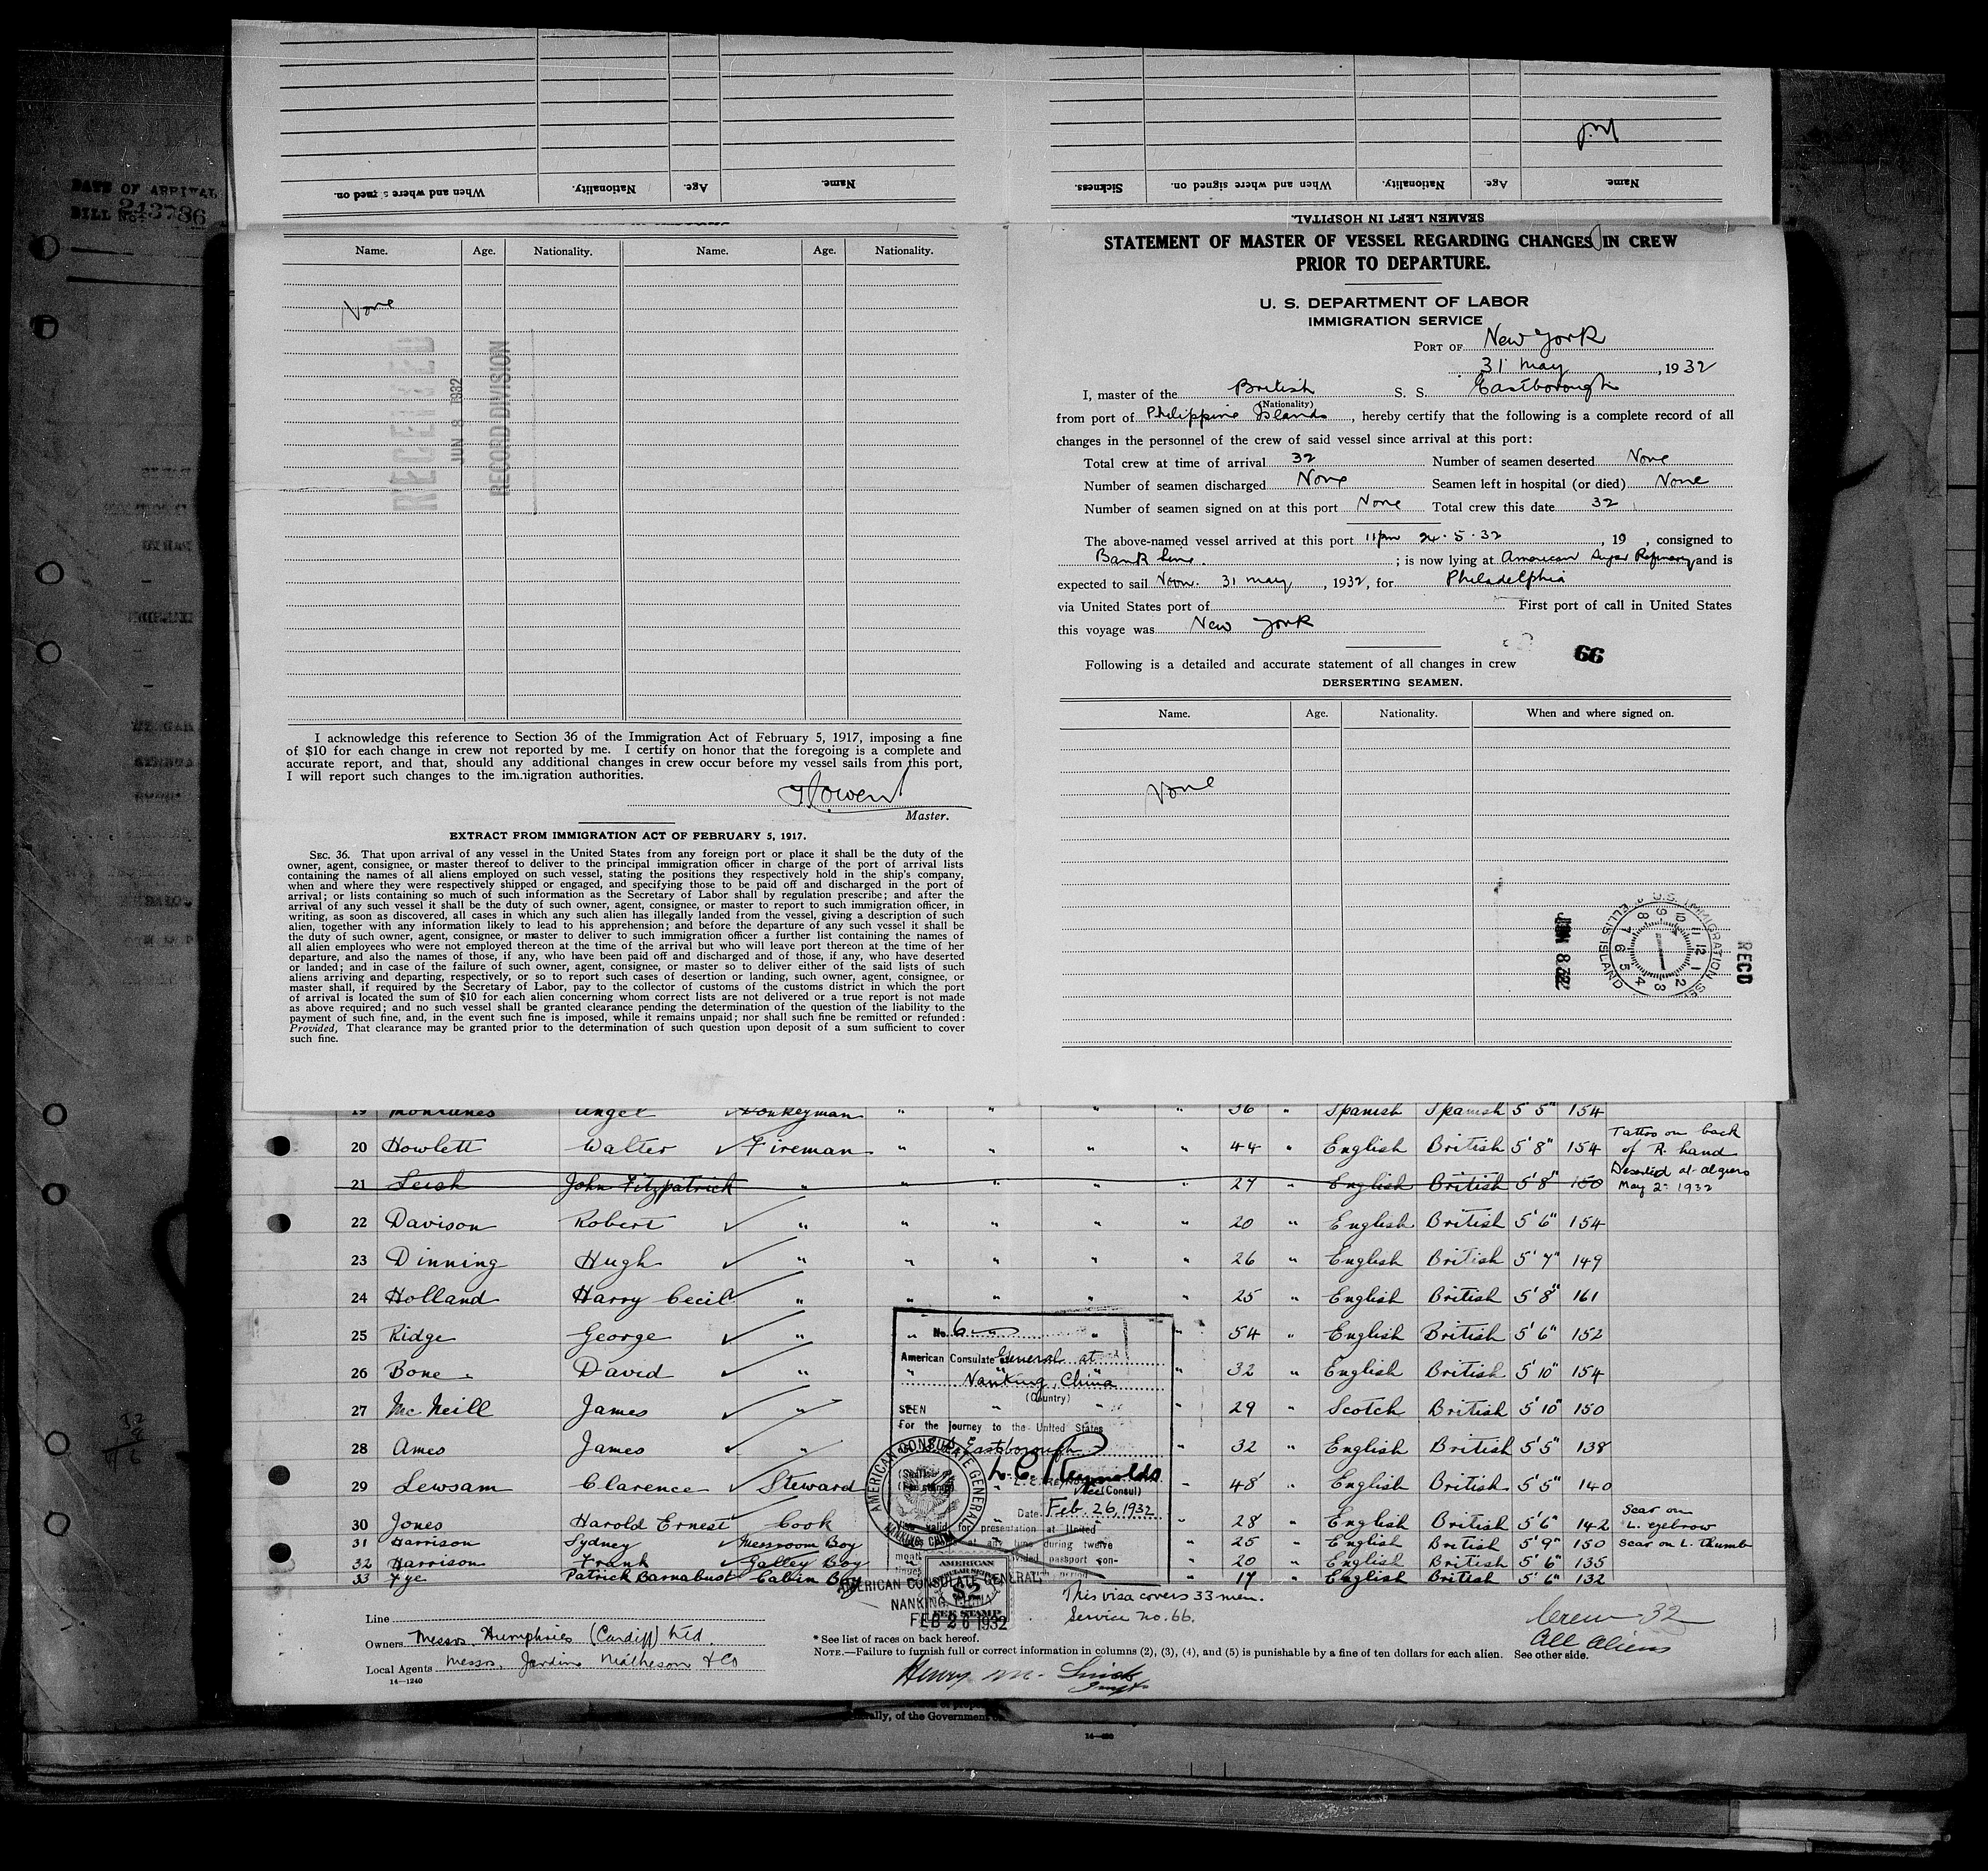 DATE OF ARRIVAL
BILL No. 243786
When and where signed on.
Nationality.
Age.
Name.
Sickness.
When and where signed on.
Nationality.
Age.
Name.
SEAMEN LEFT IN HOSPITAL.
Name. Age. Nationality. Name. Age. Nationality.
None
RECEIVED
JUN 8 1932
RECORD DIVISION
I acknowledge this reference to Section 36 of the Immigration Act of February 5, 1917, imposing a fine
of $10 for each change in crew not reported by me. I certify on honor that the foregoing is a complete and
accurate report, and that, should any additional changes in crew occur before my vessel sails from this port,
I will report such changes to the immigration authorities.
Master.
EXTRACT FROM IMMIGRATION ACT OF FEBRUARY 5, 1917.
SEC. 36. That upon arrival of any vessel in the United States from any foreign port or place it shall be the duty of the
owner, agent, consignee, or master thereof to deliver to the principal immigration officer in charge of the port of arrival lists
containing the names of all aliens employed on such vessel, stating the positions they respectively hold in the ship's company,
when and where they were respectively shipped or engaged, and specifying those to be paid off and discharged in the port of
arrival; or lists containing so much of such information as the Secretary of Labor shall by regulation prescribe; and after the
arrival of any such vessel it shall be the duty of such owner, agent, consignee, or master to report to such immigration officer, in
writing, as soon as discovered, all cases in which any such alien has illegally landed from the vessel, giving a description of such
alien, together with any information likely to lead to his apprehension; and before the departure of any such vessel it shall be
the duty of such owner, agent, consignee, or master to deliver to such immigration officer a further list containing the names of
all alien employees who were not employed thereon at the time of the arrival but who will leave port thereon at the time of her
departure, and also the names of those, if any, who have been paid off and discharged and of those, if any, who have deserted
or landed; and in case of the failure of such owner, agent, consignee, or master so to deliver either of the said lists of such
aliens arriving and departing, respectively, or so to report such cases of desertion or landing, such owner, agent, consignee, or
master shall, if required by the Secretary of Labor, pay to the collector of customs of the customs district in which the port
of arrival is located the sum of $10 for each alien concerning whom correct lists are not delivered or a true report is not made
as above required; and no such vessel shall be granted clearance pending the determination of the question of the liability to the
payment of such fine, and, in the event such fine is imposed, while it remains unpaid; nor shall such fine be remitted or refunded:
Provided, That clearance may be granted prior to the determination of such question upon deposit of a sum sufficient to cover
such fine.
STATEMENT OF MASTER OF VESSEL REGARDING CHANGES IN CREW
PRIOR TO DEPARTURE.
U. S. DEPARTMENT OF LABOR
IMMIGRATION SERVICE
PORT OF New York
31 May, 1932
I, master of the British S. S. Eastborough
(Nationality)
from port of Philippine Islands, hereby certify that the following is a complete record of all
changes in the personnel of the crew of said vessel since arrival at this port:
Total crew at time of arrival 32 Number of seamen deserted None
Number of seamen discharged None Seamen left in hospital (or died) None
Number of seamen signed on at this port None Total crew this date 32
The above-named vessel arrived at this port 11 pm 24.5.32, 19 , consigned to
Bank Line. ; is now lying at American Sugar Refinery and is
expected to sail Noon. 31 May, 1932, for Philadelphia
via United States port of First port of call in United States
this voyage was New York
66
Following is a detailed and accurate statement of all changes in crew
DERSERTING SEAMEN.
Name. Age. Nationality. When and where signed on.
None
U.S. IMMIGRATION SERV ELLIS ISLAND
RECD
19 Montanes Angel Donkeyman " " " " 36 " Spanish Spanish 5' 5" 154
20 Howlett Walter Fireman " " " " 44 " English British 5' 8" 154 Tattoo on back of R. hand
21 Leish John Fitzpatrick " " " " " 27 " English British 5' 8" 150 Deserted at Algiers May 2: 1932
22 Davison Robert " " " " " 20 " English British 5' 6" 154
23 Dinning Hugh " " " " " 26 " English British 5' 7" 149
24 Holland Harry Cecil " " " " " 25 " English British 5' 8" 161
25 Ridge George " " " " 54 " English British 5' 6" 152
26 Bone David " " " " 32 " English British 5' 10" 154
27 McNeill James " " " 29 " Scotch British 5' 10" 150
28 Ames James " " 32 " English British 5' 5" 138
29 Lewsam Clarence Steward " " 48 " English British 5' 5" 140
30 Jones Harold Ernest Cook " " 28 " English British 5' 6" 142 Scar on L. eyebrow
31 Harrison Sydney Messroom Boy " 25 " English British 5' 9" 150 Scar on L. thumb
32 Harrison Frank Galley Boy " 20 " English British 5' 6" 135
33 Fye Patrick Barnabust Cabin Boy " 17 " English British 5' 6" 132
No. 6
American Consulate General at
Nanking, China
(Country)
SEEN
For the journey to the United States
Eastborough
L. C. Reynolds
Vice (Consul)
Date Feb. 26, 1932
valid for presentation at United
at any time during twelve
provided passport con-
AMERICAN CONSULATE GENERAL
NANKING CHINA
AMERICAN
$2
FEE STAMP
AMERICAN CONSULATE GENERAL
NANKING, CHINA
FEB 26 1932
This visa covers 33 men.
Service no. 66.
Crew 32
All Aliens
Line
Owners Messrs. Humphries (Cardiff) Ltd.
Local Agents Messrs. Jardine Matheson & Co
14—1240
* See list of races on back hereof.
NOTE.—Failure to furnish full or correct information in columns (2), (3), (4), and (5) is punishable by a fine of ten dollars for each alien. See other side.
Henry M.
ally, of the Government